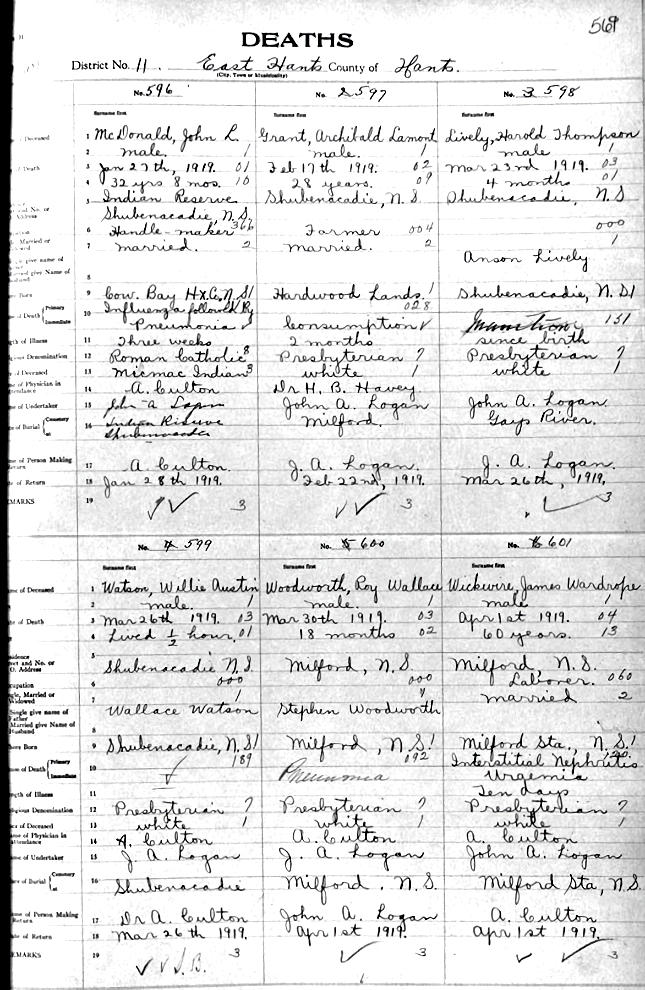 569
DEATHS
District No. 11. East Hants County of Hants.
(City, Town or Municipality)
No. 596 No. 2 597 No. 3 598
Surname first Surname first Surname first
Deceased 1 McDonald, John L. Grant, Archibald Lamont Lively, Harold Thompson
2 male. 1 male. 1 male 1
Death 3 Jan 27th, 1919. 01 Feb 17th 1919. 02 Mar 23rd 1919. 03
4 32 yrs 8 mos. 10 28 years. 09 4 months 01
5 Indian Reserve Shubenacadie, N.S. Shubenacadie, N.S
Shubenacadie, N.S.
6 Handle-maker 366 Farmer 004 000
7 married. 2 married. 2 1
Anson Lively
8
Born 9 Cow. Bay Hx.Co, N.S 1 Hardwood Lands. 1 Shubenacadie, N.S 1
of Death Primary Immediate 10 Influenza followed by 028
Pneumonia Consumption 151
of Illness 11 Three weeks 2 months since birth
Religious Denomination 12 Roman Catholic 8 Presbyterian 7 Presbyterian 7
of Deceased 13 Micmac Indian 3 white 1 white 1
of Physician in attendance 14 A. Culton Dr H. B. Havey
of Undertaker 15 John A. Logan John A. Logan
of Burial Cemetery at 16 Indian Reserve Milford. Gays River.
Shubenacadie
of Person Making Return 17 A. Culton. J. A. Logan. J. A. Logan.
of Return 18 Jan 28th 1919. Feb 22nd, 1919. Mar 26th, 1919.
REMARKS 19 3 3 3
No. 4 599 No. 5 600 No. 6 601
Surname first Surname first Surname first
of Deceased 1 Watson, Willie Austin Woodworth, Roy Wallace Wickwire, James Wardrope
2 male. 1 male. 1 male 1
of Death 3 Mar 26th 1919. 03 Mar 30th 1919. 03 Apr 1st 1919. 04
4 Lived ½ hour. 01 18 months 02 60 years. 13
5 Shubenacadie N.S. Milford, N.S. Milford, N.S.
6 000 000 Laborer. 060
7 1 married 2
Wallace Watson Stephen Woodworth
8
Born 9 Shubenacadie, N.S 1 Milford, N.S. 1 Milford Sta., N.S. 1
of Death Primary Immediate 10 189 Pneumonia 092 Interstitial Nephritis
Uraemia
of Illness 11 Ten days
Religious Denomination 12 Presbyterian 7 Presbyterian 7 Presbyterian 7
of Deceased 13 white 1 white 1 white 1
of Physician in attendance 14 A. Culton A. Culton A. Culton
of Undertaker 15 J. A. Logan J. A. Logan John A. Logan
of Burial Cemetery at 16 Shubenacadie Milford, N.S. Milford Sta, N.S.
of Person Making Return 17 Dr A. Culton John A. Logan A. Culton
of Return 18 Mar 26th 1919. Apr 1st 1919. Apr 1st 1919.
REMARKS 19 3 3 3